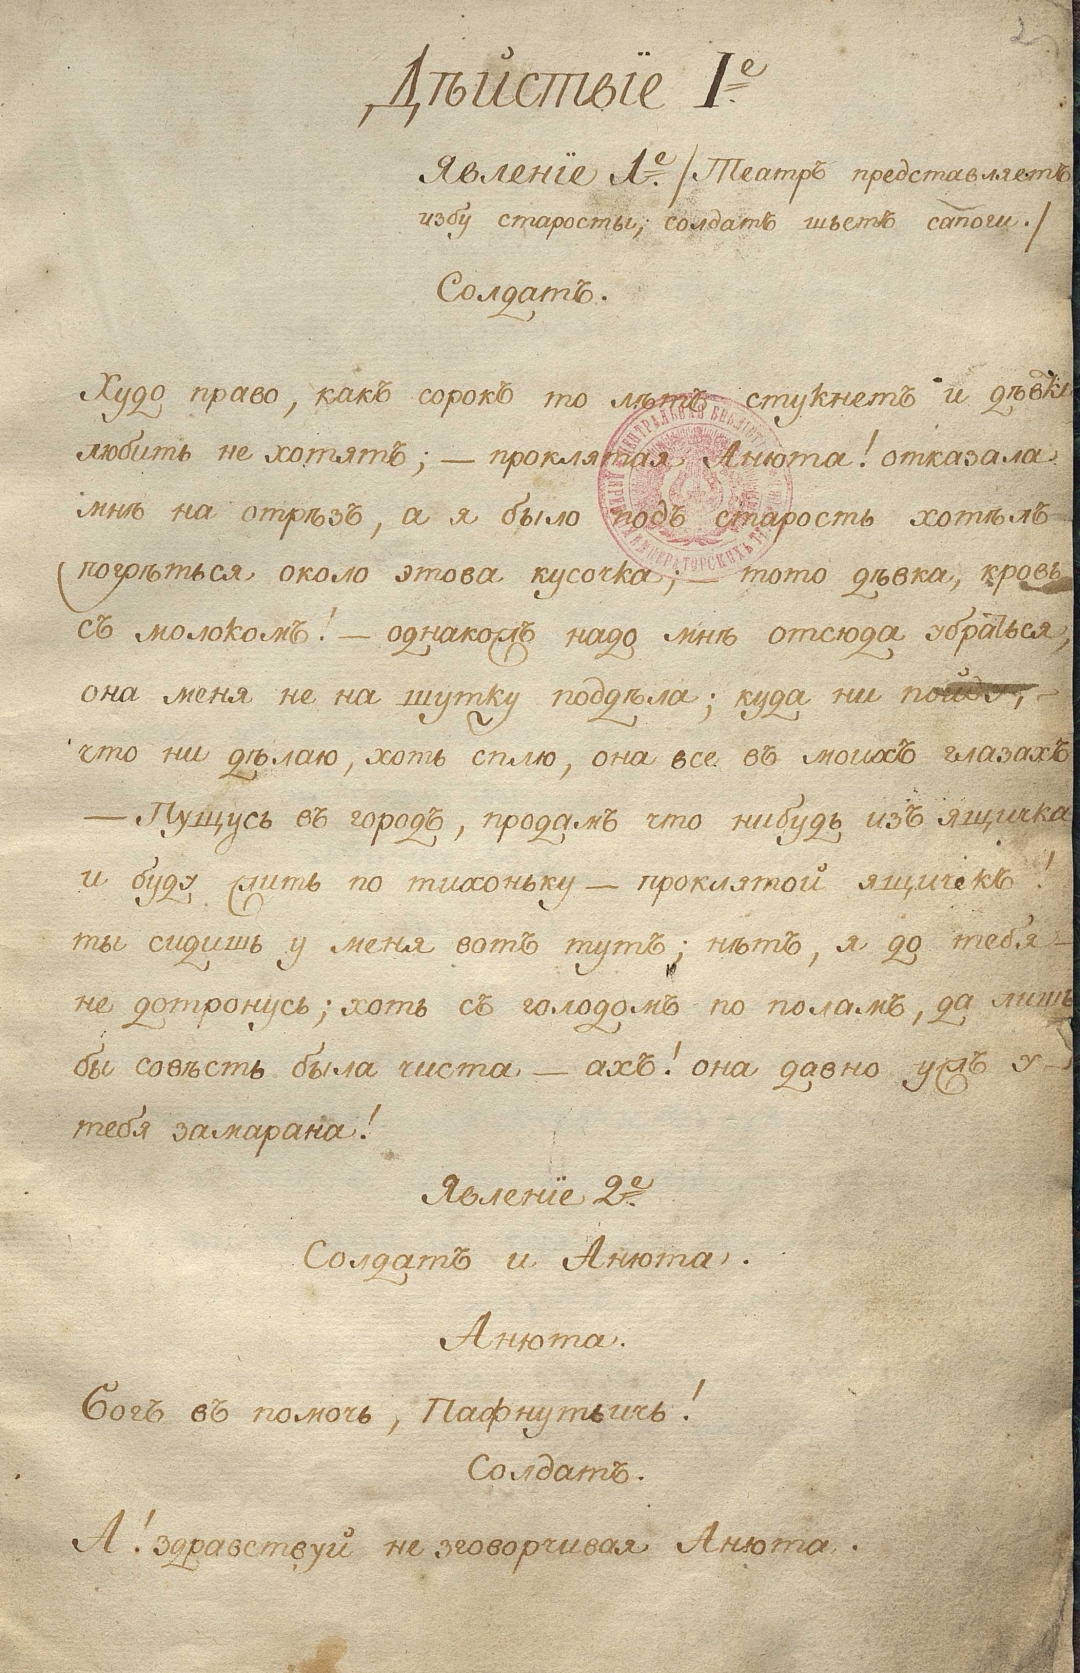 2
Дѣйствїе I.е
Явленїе 1.е /Театръ представляетъ
избу старосты; солдатъ шьетъ сапоги./
Солдатъ.
Худо право, какъ сорокъ то лѣтъ стукнетъ и дѣвки
любить не хотятъ; — проклятая Анюта! отказала
мнѣ на отрѣзъ, а я было подъ старость хотѣлъ
погрѣться около этова кусочка; — тото дѣвка, кровь
съ молокомъ! — однакожъ надо мнѣ отсюда убраться,
она меня не на шутку поддѣла; куда ни пойду, —
что ни дѣлаю, хоть сплю, она все въ моихъ глазахъ
— Пущусь въ городъ, продамъ что нибудь изъ ящичка
и буду жить по тихоньку — проклятой ящичекъ!
ты сидишь у меня вотъ тутъ; нѣтъ, я до тебя
не дотронусь; хоть съ голодомъ по поламъ, да лишь
бы совѣсть была чиста — ахъ! она давно ужъ у
тебя замарана!
Явленїе 2.е
Солдатъ и Анюта.
Анюта.
Богъ въ помочь, Пафнутьичь!
Солдатъ.
А! здравствуй не зговорчивая Анюта.